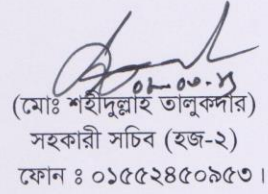 (মোঃ শহীদুল্লাহ তালুকদার)
সহকারী সচিব (হজ-২)
ফোন ঃ ০১৫৫২৪৫০৯৫৩।